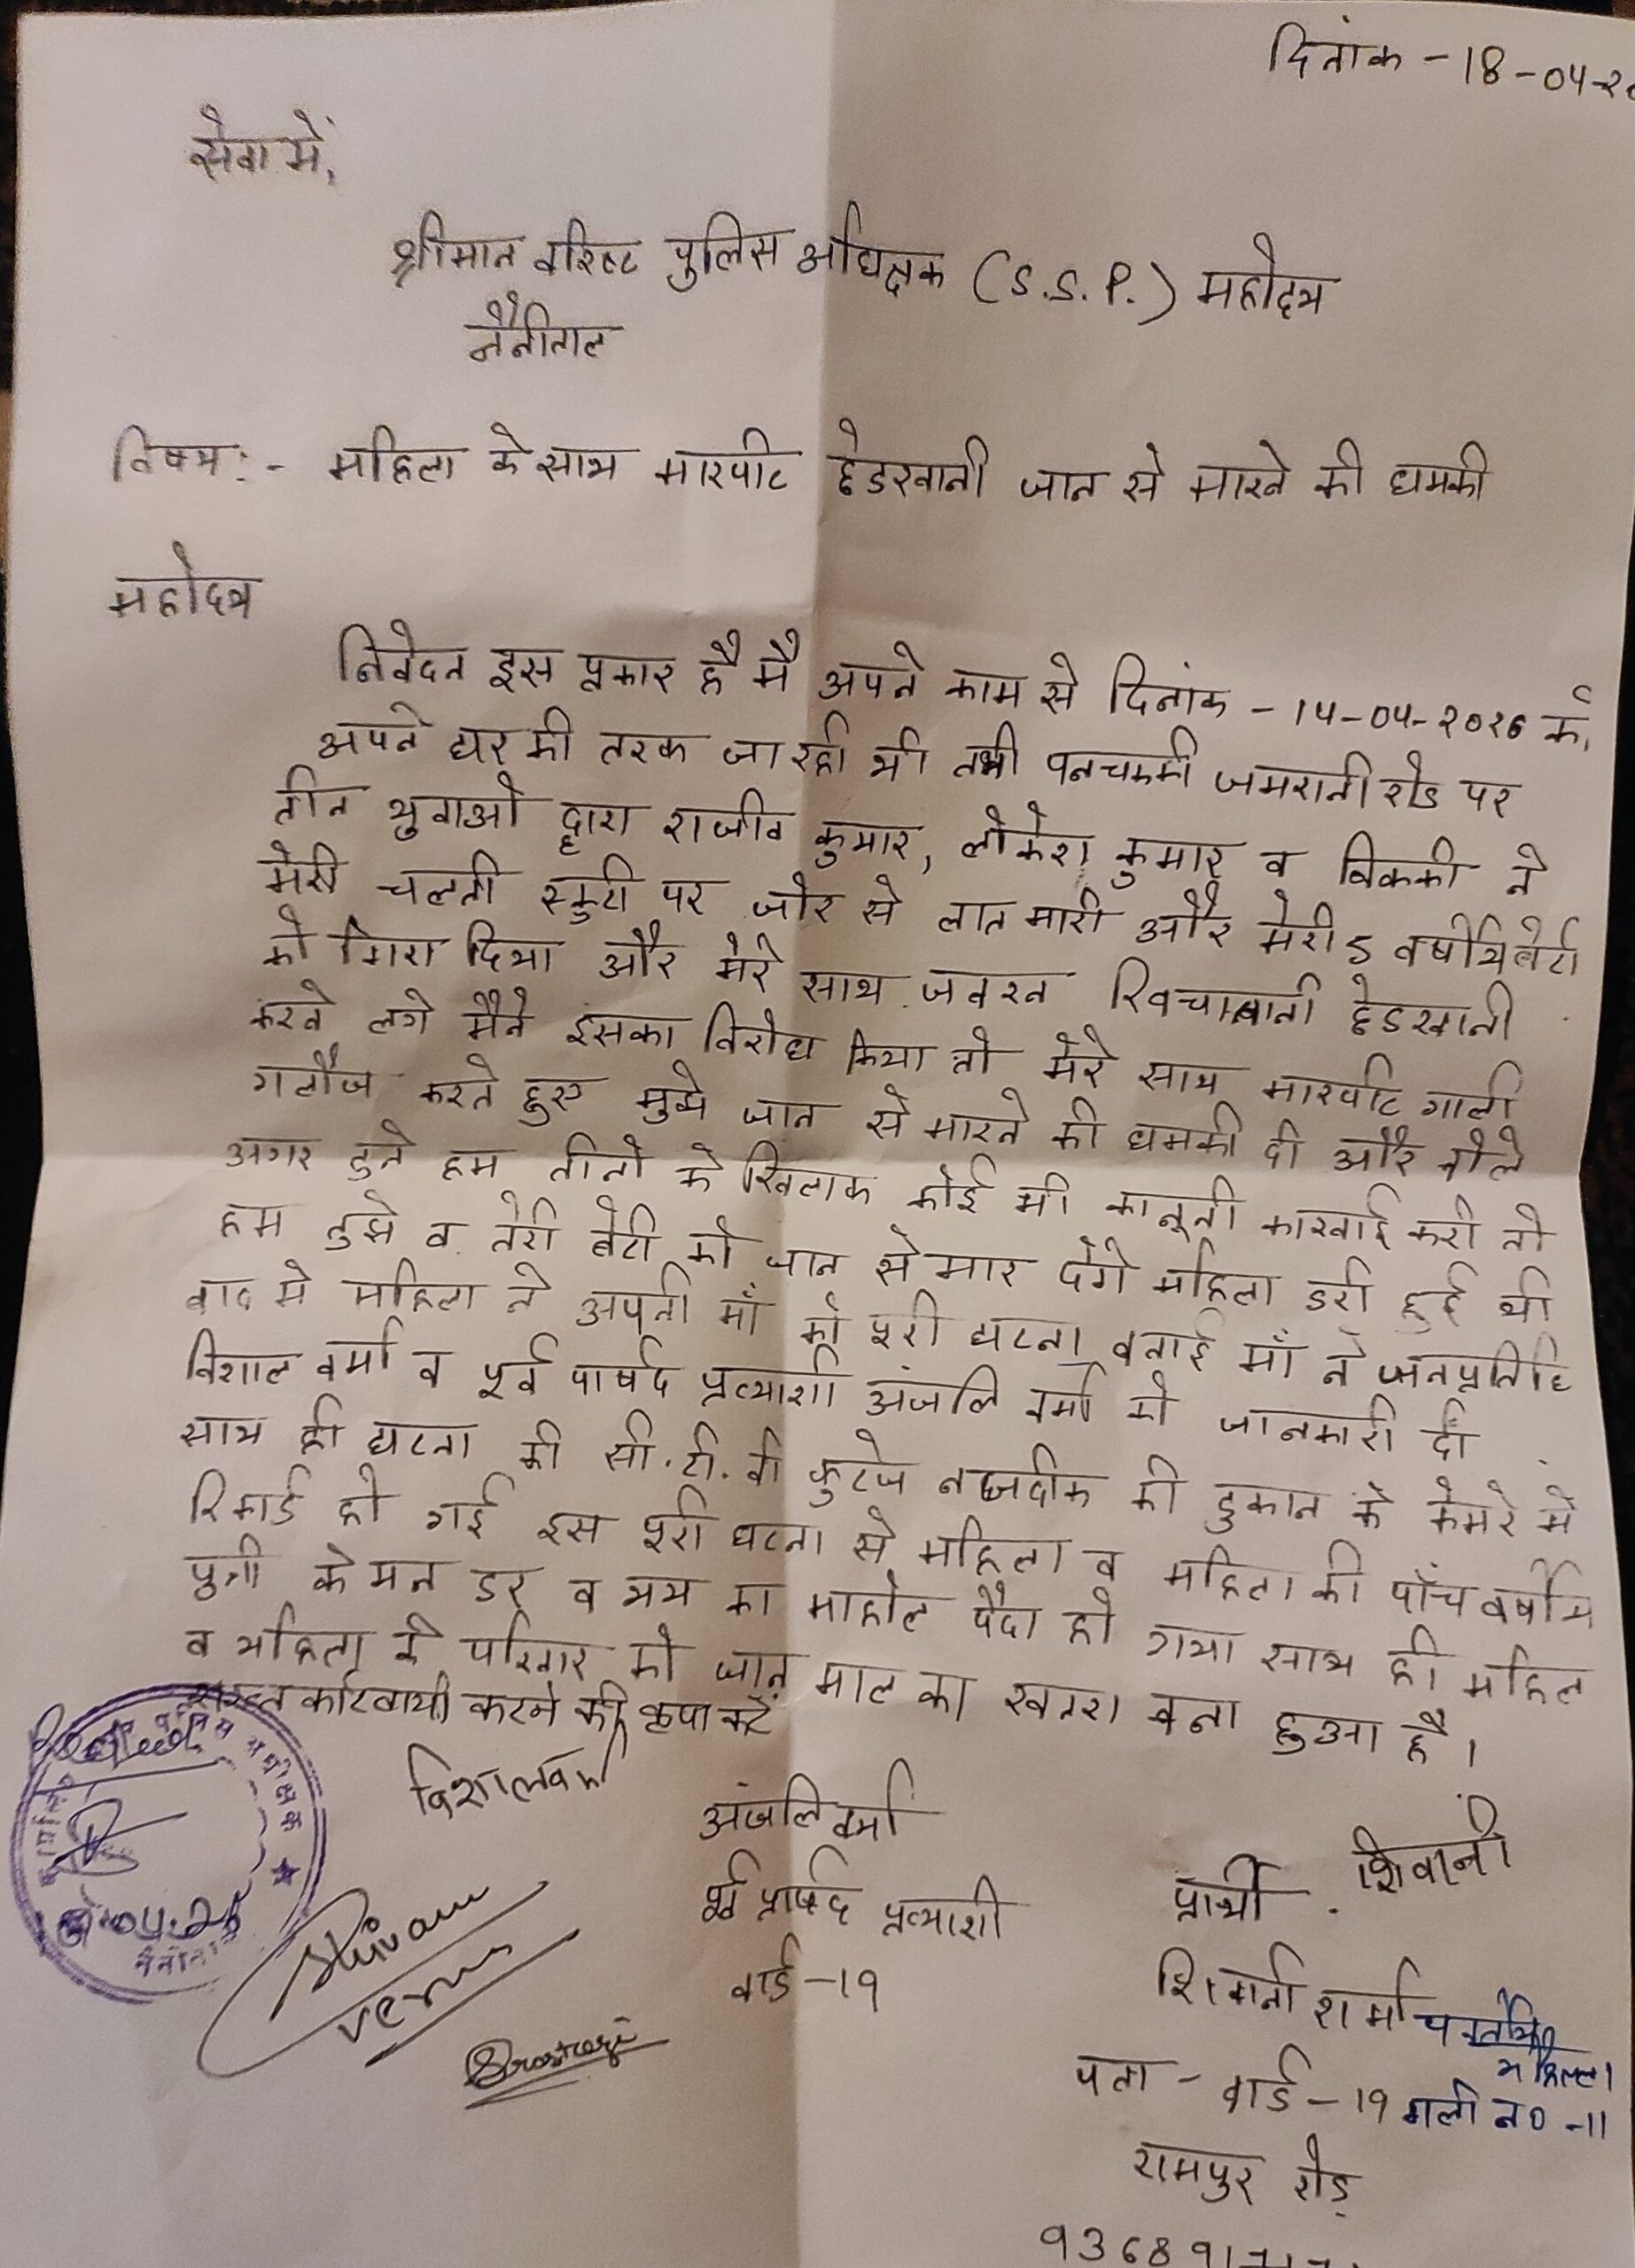 दिनांक - 18-04-20
सेवा में,
श्रीमान वरिष्ट पुलिस अधिक्षक (S.S.P.) महोदय
नैनीताल
विषय:- महिला के साथ मारपीट छेडखानी जान से मारने की धमकी
महोदय
निवेदन इस प्रकार है मै अपने काम से दिनांक - 14-04-2026 को
अपने घर की तरफ जा रही थी तभी पनचक्की जमरानी रोड पर
तीन युवाओ द्वारा राजीव कुमार, लोकेश कुमार व विक्की ने
मेरी चलती स्कुटी पर जोर से लात मारी और मेरी 5 वर्षीय बेटी
को गिरा दिया और मेरे साथ जबरन खिचातानी छेडखानी
करने लगे मैने इसका विरोध किया तो मेरे साथ मारपीट गाली
गलौज करते हुए मुझे जान से मारने की धमकी दी और बोले
अगर तुने हम तीनो के खिलाफ कोई भी कानूनी कारवाई करी तो
हम तुझे व तेरी बेटी को जान से मार देंगे महिला डरी हुई थी
बाद मे महिला ने अपनी माँ को पुरी घटना बताई माँ ने जनप्रतिधि
विशाल वर्मा व पूर्व पार्षद प्रत्याशी अंजलि वर्मा को जानकारी दी
साथ ही घटना की सी.टी.वी फुटेज नजदीक की दुकान के केमरे मे
रिकार्ड हो गई इस पुरी घटना से महिला व महिला की पाँच वर्षीय
पुत्री के मन डर व भय का माहोल पैदा हो गया साथ ही महिल
व महिला के परिवार को जान माल का खतरा बना हुआ है।
सख्त कारवायी करने की कृपा करें
विशाल वर्मा
अंजलि वर्मा
पूर्व पार्षद प्रत्याशी
वार्ड - 19
Shivam
verma
प्रार्थी . शिवानी
शिवानी शर्मा
पता - वार्ड - 19 गली न० - 11
रामपुर रोड
नैनीताल